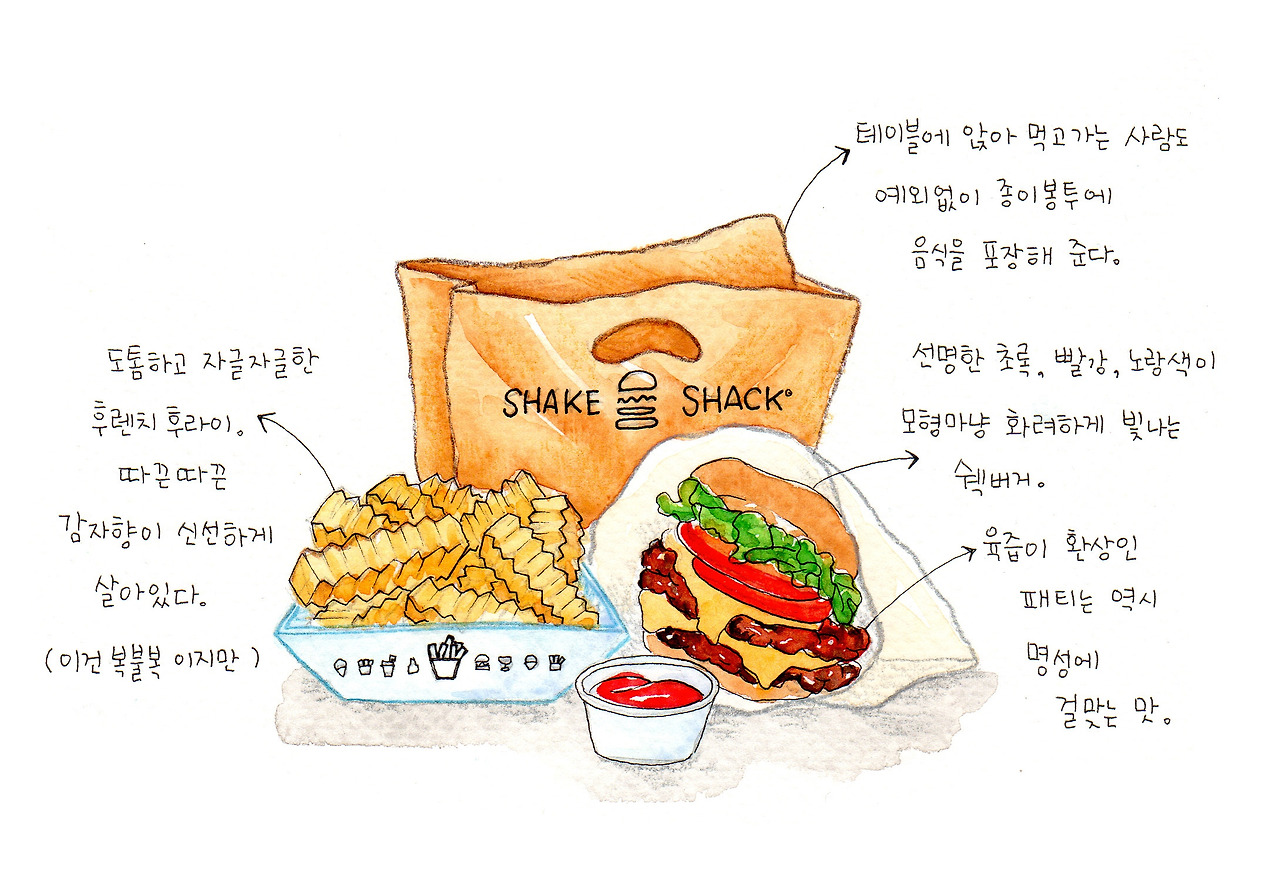 테이블에 앉아 먹고가는 사람도
예외없이 종이봉투에
음식을 포장해 준다.
SHAKE SHACK®
도톰하고 자글자글한
후렌치 후라이.
따끈따끈
감자향이 신선하게
살아있다.
(이건 복불복 이지만)
선명한 초록, 빨강, 노랑색이
모형마냥 화려하게 빛나는
쉑버거.
육즙이 환상인
패티는 역시
명성에
걸맞는 맛.